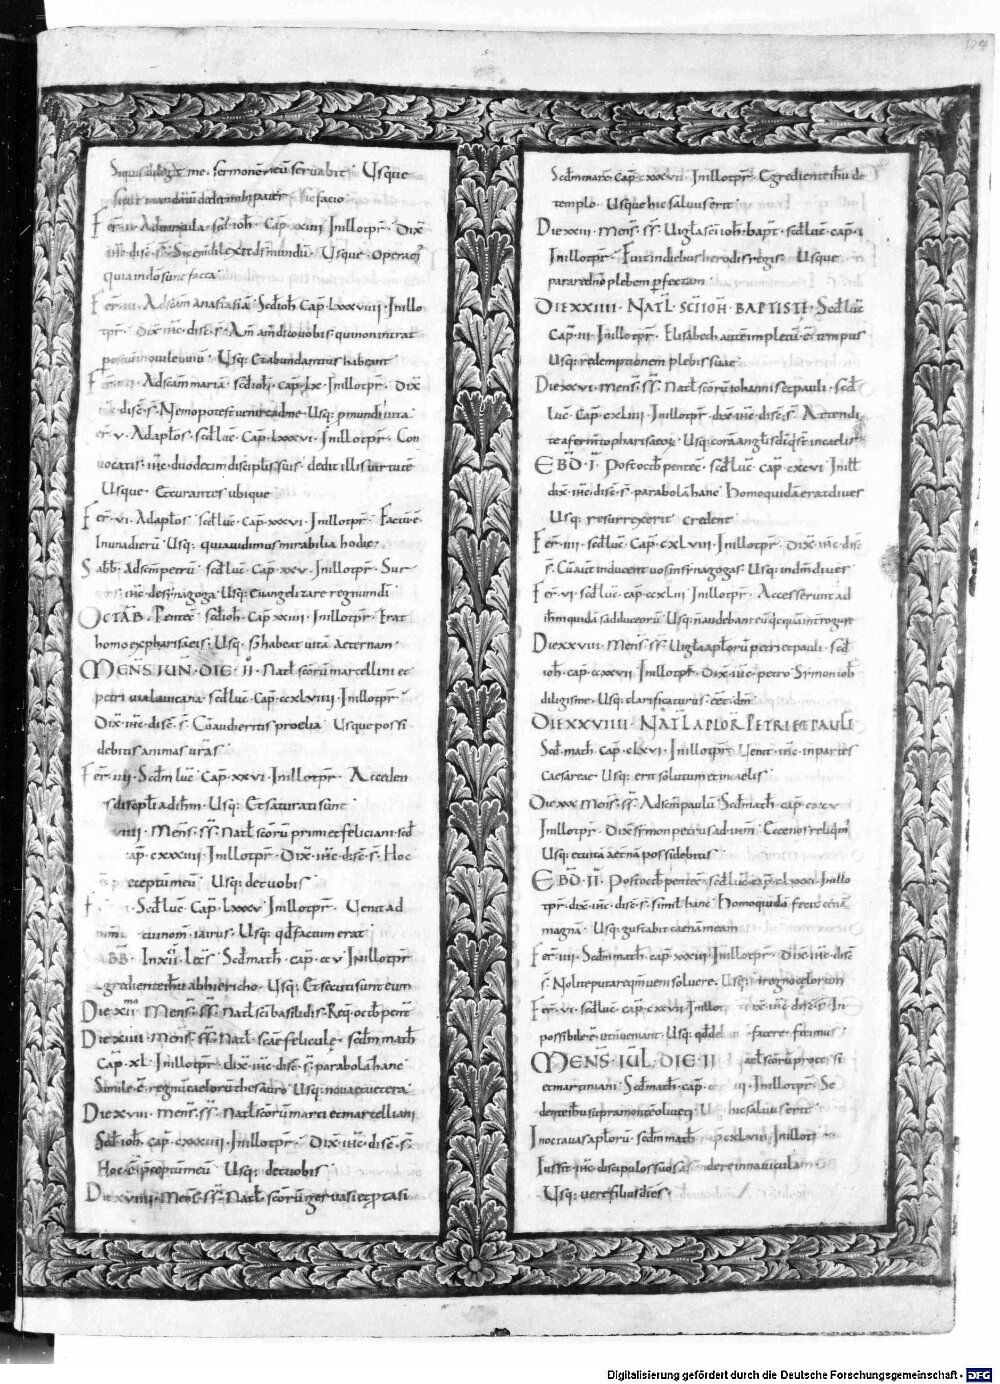 me. sermonē meū servabit Usque
sicut mandatū dedit mihi pater sic facio
Fer. II. Ad vincula. scd ioh̄. Cap. XXIIII Inillotpr̄. Dix̄
ih̄c disc̄. s̄. Sic eni dilexit d̄s mundū Usque opera eiꝰ
quia in dō sunt facta
Fer. III. Ad scam anastasiā Scdioh̄ Cap. LXXXVIIII. Inillo
tpr̄. Dix̄ ih̄c. disc̄. s̄. Am̄ am̄ dico vobis. qui non intrat
ovile oviū Usq; Et abundantius habeant
Fer. IIII. Ad scam mariā. scd ioh̄. Cap. LX. Inillotpr̄. Dix̄
ih̄c disc̄. s̄. Nemo potest venire ad me. Usq; p mundi vita
Fer. V. Ad apl̄os. scd luc̄. Cap. LXXXVI. Inillotpr̄. Con
vocatis. ih̄c. duodecim discipl̄is suis. dedit illis virtutē
Usque. Et curantes ubique
Fer. VI. Ad apl̄os scd luc̄. Cap. XXXVI. Inillotpr̄. Factū ē
In una dierū Usq; quia vidimus mirabilia hodie
Sabb̄. Ad scm̄ petrū scd luc̄. Cap. XXV. Inillotpr̄. Sur
ih̄c de synagoga Usq; Evangelizare regnum dī
OCTAB. Pentec̄ scd ioh̄. Cap. XXIIII. Inillotpr̄. Erat
homo ex pharisaeis. Usq; s̄ habeat vitā Aeternam
MENS IUN. DIE. II. Natl̄ scōrū marcellini et
petri via lavicana scd luc̄. Cap. CCXLVIIII. Inillotpr̄
Dix̄ ih̄c. disc̄. s̄. Cū audieritis proelia Usque possi
debitis animas vr̄as
Fer. IIII. Scdm luc̄ Cap. XXVI. Inillotpr̄. Acceden
discipl̄i ad ih̄m. Usq; Et saturati sunt
VIIII. Mens̄. ss̄. Natl̄ scōrū primi et feliciani. scd
cap. CXXXIIII. Inillotpr̄. Dix̄. ih̄c. disc̄. s̄. Hoc
pceptū meū Usq; det vobis
Scd luc̄ Cap. LXXXV Inillotpr̄. Venit ad
cui nom̄. iairus. Usq; qd̄ factum erat
ABB. In XII. Lec̄s Scd math̄. cap. CCV Inillotpr̄
gredientē ih̄u ab hiericho. Usq; Et secuti sunt eum
Die XII Mens̄. ss̄. Natl̄ scī basilidis. Req. octb̄ pent̄
Die XIIII. Mens̄. ss̄. Natl̄. scae felicule. scdm math̄
Cap. XL. Inillotpr̄. dix̄. ih̄c. disc̄. s̄. parabolā hanc
Simile ē. regnū caelorū thesauro Usq; nova et vetera
Die XVIII. mens̄. ss̄. Natl̄ scōrū marci et marcelliani
Scd ioh̄. Cap. CXXXIIII. Inillotpr̄. Dix̄ ih̄c. disc̄. s̄.
Hoc. ē pceptū meū Usq; det vobis
Die XVIIII. Mens̄. ss̄. Natl̄ scōrū gervasi et p̄tasi
Scdm marc̄ Cap. CXXXVII. Inillotpr̄. Egrediente ih̄u de
templo. Usque hic salvus erit
Die XXIII. mens̄. ss̄. Vigl̄a scī ioh̄. bapt̄. scd luc̄. cap. I
Inillotpr̄. Fuit in diebus herodis regis. Usque
parare dnō plebem pfectam
DIE XXIIII. NATL̄. SC̄I IOH̄. BAPTISTI. Scd luc̄
Cap. III. Inillotpr̄. Elisabeth autē impletū ē tempus
Usq; redemptionem plebis suae
Die XXVI. mens̄. ss̄. Natl̄ scōrū iohanni set pauli. scd
luc̄. Cap. CXLIIII. Inillotpr̄. dix̄. ih̄c. disc̄. s̄. Attendi
te a ferm̄to pharisaeoꝝ. Usq; corā angl̄is dī q̄ st̄ in caelis
EBD. I. Post octb̄ pentec̄. scd luc̄. cap. CXCVI Inill̄
dix̄. ih̄c. disc̄. s̄. parabolā hanc Homo quidā erat dives
Usq; resurrexerit credent
Fer. IIII. scd luc̄. Cap. CXLVIII. Inillotpr̄. Dix̄. ih̄c. disc̄
s̄. Cū aut̄ inducent vos in synagogas. Usq; in dm̄ dives
Fer. VI. scd luc̄. cap. CCXLIII. Inillotpr̄. Accesserunt ad
ih̄m quidā sadduceorū Usq; n̄ audebant eū qcquā interrogare
Die XXVIII. Mens̄. ss̄. Vigl̄a apl̄orū petri et pauli. scd
ioh̄. cap. CCXXVII. Inillotpr̄. Dix̄ ih̄c. petro Symon ioh̄
diligisme. Usq; clarificaturus. eēt. dm̄
DIE XXVIIII. NATL̄ APLOR̄ PETRI ET PAULI
Scd. math̄. Cap. CLXVI. Inillotpr̄ Venit. ih̄c. in partes
caesareae. Usq; erit solutum et in caelis
Die XXX. Mens̄. ss̄. Ad scm̄ paulū Scd math̄. cap. CXCV
Inillotpr̄. Dix̄ symon petrus ad ih̄m. Ecce nos reliqm̄ꝰ
Usq; et vitā aet̄nā possidebitis
EBD. II. Post octb̄ pentec̄. scd luc̄. cap. CLXXXI. Inillo
tpr̄. dix̄. ih̄c. disc̄. s̄. simil̄ hanc Homo quidā fecit cenā
magnā Usq; gustabit caenā meam
Fer. IIII. Scdm math̄. Cap. XXXIII. Inillotpr̄. Dix̄. ih̄c. disc̄
s̄. Nolite putare qm̄ veni solvere. Usq; in regno celorum
Fer. VI. scd luc̄. cap. CXCVII Inillotp Dix̄. ih̄c. disc̄. s̄. In
possibile ē. ut n̄ veniant. Usq; qd̄ deb facere. fecimus
MENS. IUL. DIE II Natl̄ scōrū processi
et martiniani Scd math̄. cap. Inillotpr̄. Se
dente ih̄u supra monte oliveti U hic salvus erit
In octavas apl̄orū scdm math̄ cap CXLVIII Inillotpr̄
Iussit. ih̄c. discipulos suos ascendere in navicula
Usq; vere filius dī es
Digitalisierung gefördert durch die Deutsche Forschungsgemeinschaft - DFG